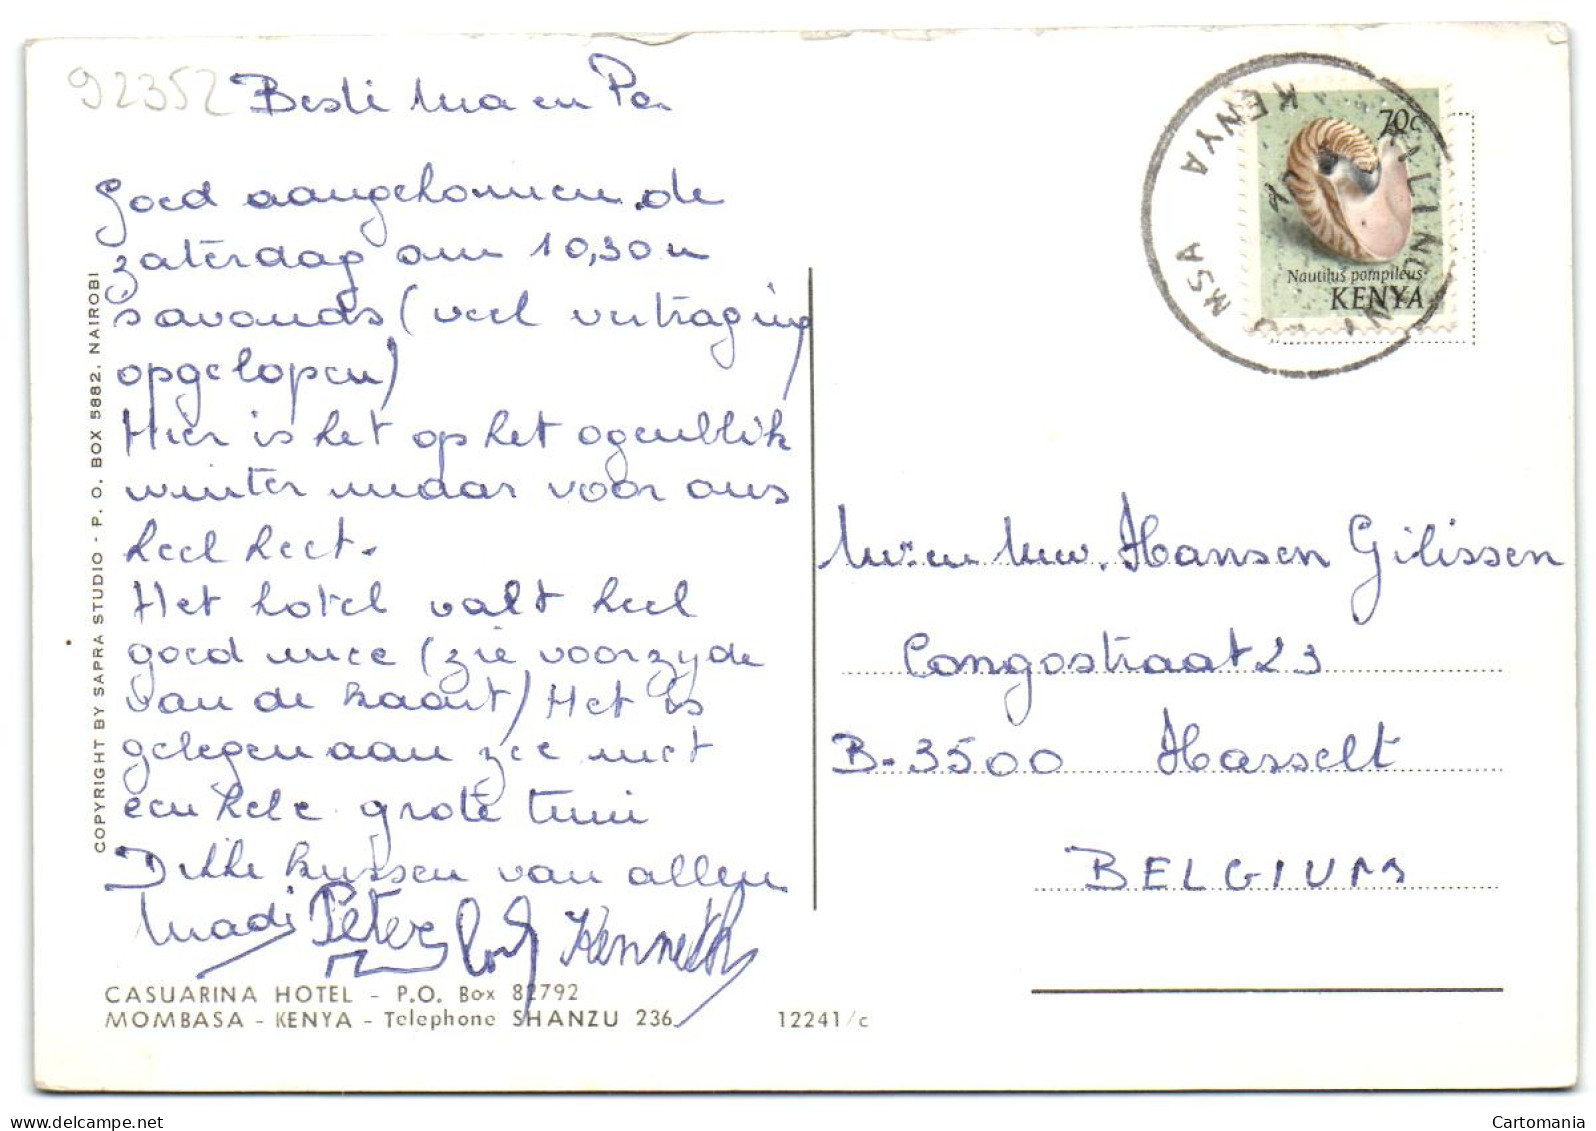 92352
Beste Ma en Pa
Goed aangekomen de
zaterdag om 10,30 u
savonds (veel vertraging
opgelopen)
Hier is het op het ogenblik
winter maar voor ons
heel heet.
Het hotel valt heel
goed mee (zie voorzyde
van de kaart) Het is
gelegen aan zee met
een hele grote tuin
Dikke kussen van allen
Madi Peter Kenneth
CASUARINA HOTEL - P.O. Box 82792
MOMBASA - KENYA - Telephone SHANZU 236
12241/c
COPYRIGHT BY SAPRA STUDIO - P. O. BOX 5882. NAIROBI
70c
Nautilus pompileus
KENYA
KENYA
MSA
Mr. en Mw. Hansen Gilissen
Congostraat 23
B-3500 Hasselt
BELGIUM
www.delcampe.net
Cartomania